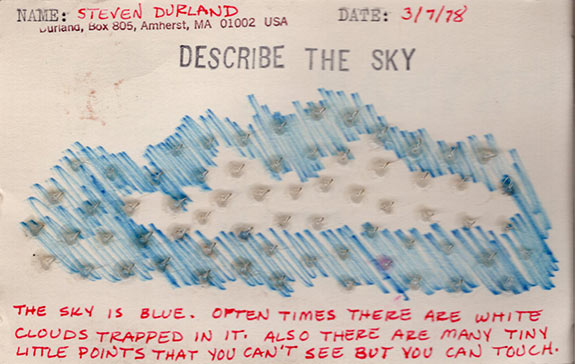 NAME: STEVEN DURLAND DATE: 3/7/78
Durland, Box 805, Amherst, MA 01002 USA
DESCRIBE THE SKY
THE SKY IS BLUE. OFTEN TIMES THERE ARE WHITE
CLOUDS TRAPPED IN IT. ALSO THERE ARE MANY TINY
LITTLE POINTS THAT YOU CAN'T SEE BUT YOU CAN TOUCH.